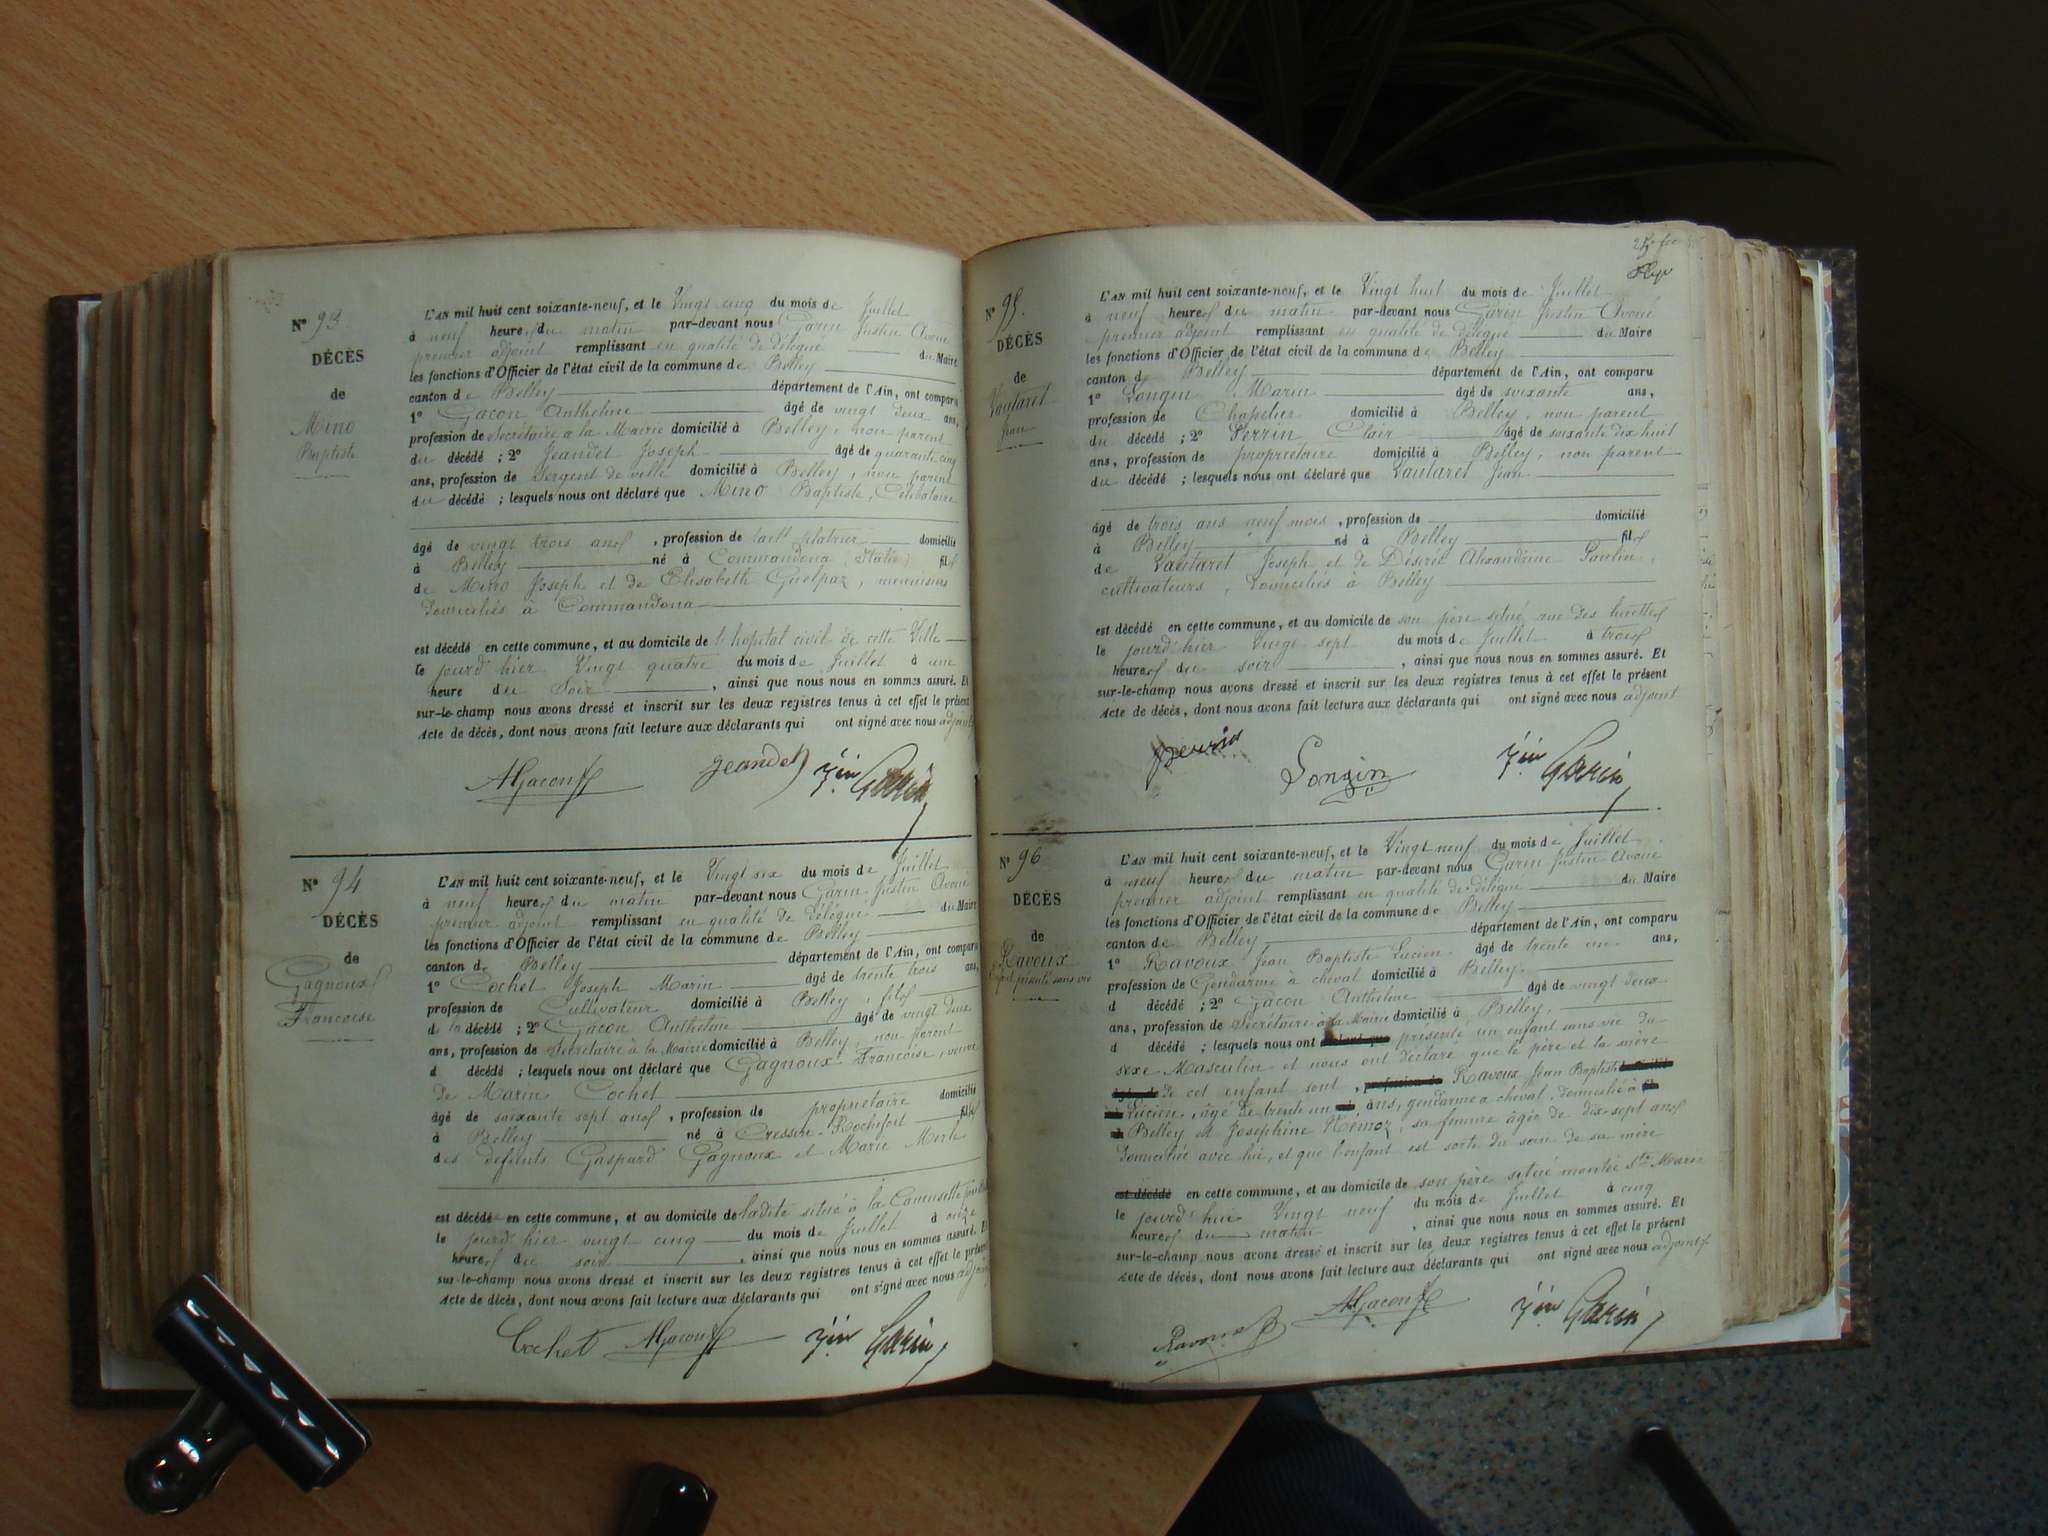 N° 93.
DÉCÈS
de
Mino
Baptiste
L'AN mil huit cent soixante-neuf, et le Vingt cinq du mois de Juillet
à neuf heures du matin par-devant nous Garin Justin Avoué
premier adjoint remplissant en qualité de délégué du Maire
les fonctions d'Officier de l'état civil de la commune de Belley
canton de Belley département de l'Ain, ont comparu
1° Gacon Anthelme âgé de vingt deux ans,
profession de Secrétaire à la Mairie domicilié à Belley, non parent
du décédé ; 2° Jeandet Joseph âgé de quarante cinq
ans, profession de Sergent de ville domicilié à Belley, non parent
du décédé ; lesquels nous ont déclaré que Mino Baptiste, Célibataire
âgé de vingt trois ans, profession de platrier domicilié
à Belley né à Commandona (Italie) fils
de Mino Joseph et de Elisabeth Guelpaz, menuisiers
domiciliés à Commandona
est décédé en cette commune, et au domicile de l'hopital civil de cette Ville
le jourd'hier Vingt quatre du mois de Juillet à une
heure du Soir, ainsi que nous nous en sommes assuré. Et
sur-le-champ nous avons dressé et inscrit sur les deux registres tenus à cet effet le présent
acte de décès, dont nous avons fait lecture aux déclarants qui ont signé avec nous adjoint
AGacon Jeandet Jin Garin
N° 94
DÉCÈS
de
Gagnoux
Francoise
L'AN mil huit cent soixante-neuf, et le Vingt six du mois de Juillet
à neuf heures du matin par-devant nous Garin Justin Avoué
premier adjoint remplissant en qualité de délégué du Maire
les fonctions d'Officier de l'état civil de la commune de Belley
canton de Belley département de l'Ain, ont comparu
1° Cochet Joseph Marin âgé de trente trois ans,
profession de Cultivateur domicilié à Belley, fils
d la décédé ; 2° Gacon Anthelme âgé de vingt deux
ans, profession de Secrétaire à la Mairie domicilié à Belley, non parent
d décédé ; lesquels nous ont déclaré que Gagnoux Francoise, veuve
de Marin Cochet
âgé de soixante sept ans, profession de proprietaire domicilié
à Belley né à Cressin-Rochefort fille
des defunts Gaspard Gagnoux et Marie Merle
est décédé en cette commune, et au domicile de ladite situé à la Camusette
le jourd'hier vingt cinq du mois de Juillet à onze
heures du soir, ainsi que nous nous en sommes assuré. Et
sur-le-champ nous avons dressé et inscrit sur les deux registres tenus à cet effet le présent
acte de décès, dont nous avons fait lecture aux déclarants qui ont signé avec nous adjoint
Cochet AGacon Jin Garin
N° 95.
DÉCÈS
de
Vautaret
Jean
L'AN mil huit cent soixante-neuf, et le Vingt huit du mois de Juillet
à neuf heures du matin par-devant nous Garin Justin Avoué
premier adjoint remplissant en qualité de délégué du Maire
les fonctions d'Officier de l'état civil de la commune de Belley
canton de Belley département de l'Ain, ont comparu
1° Longin Marin âgé de soixante ans,
profession de Chapelier domicilié à Belley, non parent
du décédé ; 2° Perrin Clair âgé de soixante dix huit
ans, profession de proprietaire domicilié à Belley, non parent
du décédé ; lesquels nous ont déclaré que Vautaret Jean
âgé de trois ans neuf mois, profession de domicilié
à Belley né à Belley fils
de Vautaret Joseph et de Désirée Alexandrine
cultivateurs, domiciliés à Belley
est décédé en cette commune, et au domicile de son père situé rue des
le jourd'hier Vingt sept du mois de Juillet à trois
heures du soir, ainsi que nous nous en sommes assuré. Et
sur-le-champ nous avons dressé et inscrit sur les deux registres tenus à cet effet le présent
acte de décès, dont nous avons fait lecture aux déclarants qui ont signé avec nous adjoint
Perrin Longin Jin Garin
N° 96
DÉCÈS
de
Ravoux
présenté sans vie
L'AN mil huit cent soixante-neuf, et le Vingt neuf du mois de Juillet
à neuf heures du matin par-devant nous Garin Justin Avoué
premier adjoint remplissant en qualité de délégué du Maire
les fonctions d'Officier de l'état civil de la commune de Belley
canton de Belley département de l'Ain, ont comparu
1° Ravoux Jean Baptiste Lucien âgé de trente un ans,
profession de Gendarme à cheval domicilié à Belley
d décédé ; 2° Gacon Anthelme âgé de vingt deux
ans, profession de Secrétaire à la Mairie domicilié à Belley,
d décédé ; lesquels nous ont présenté un enfant sans vie du
sexe Masculin et nous ont déclaré que le père et la mère
de cet enfant sont, Ravoux Jean Baptiste
Lucien, âgé de trente un ans, gendarme à cheval, domicilié à
Belley et Josephine Hémoz, sa femme âgée de dix-sept ans
domiciliée avec lui, et que l'enfant est sorti du sein de sa mère
en cette commune, et au domicile de son père situé montée Ste Marie
le jourd'hui Vingt neuf du mois de Juillet à cinq
heures du matin, ainsi que nous nous en sommes assuré. Et
sur-le-champ nous avons dressé et inscrit sur les deux registres tenus à cet effet le présent
acte de décès, dont nous avons fait lecture aux déclarants qui ont signé avec nous adjoint
Ravoux AGacon Jin Garin